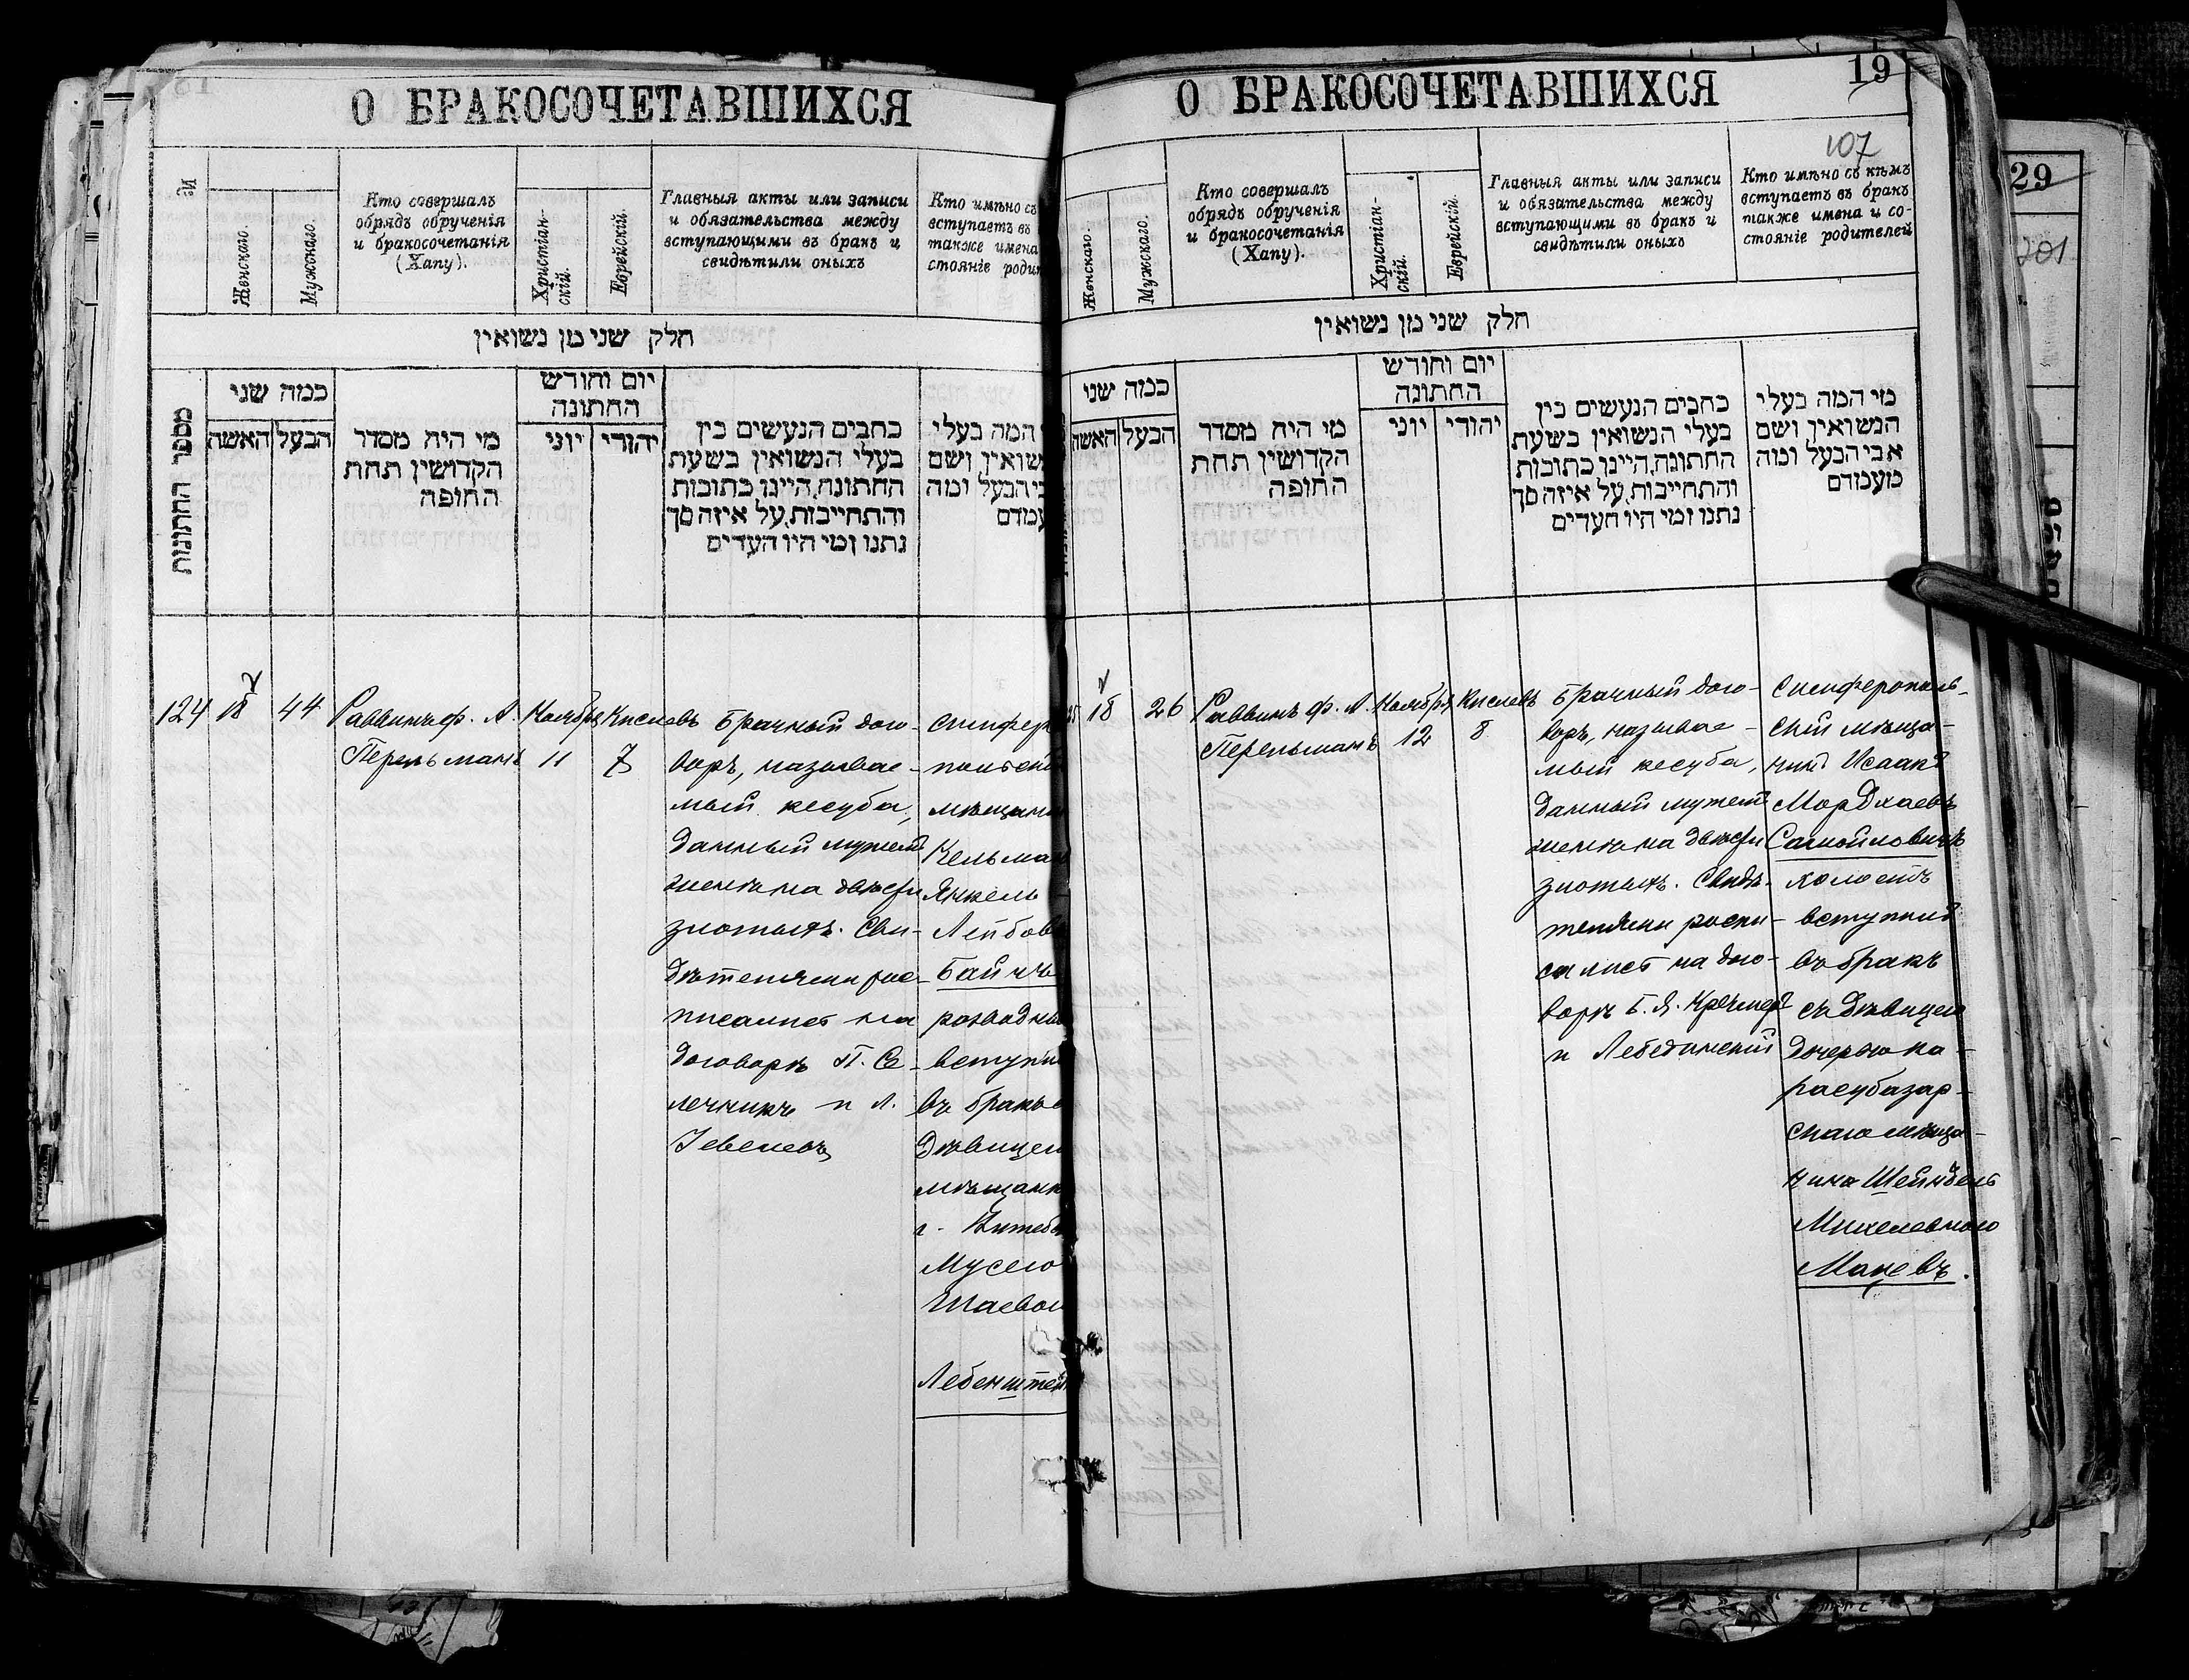 О БРАКОСОЧЕТАВШИХСЯ
№
Женскаго.
Мужскаго.
Кто совершалъ
обрядъ обрученія
и бракосочетанія
(Хапу).
Христіан-
скій.
Еврейскій.
Главныя акты или записи
и обязательства между
вступающими въ бракъ и
свидѣтили оныхъ
Кто имѣно съ
вступаетъ въ
также имена
стояніе роди
חלק שני מן נשואין
מספר החתונות
כמה שני
האשה
הבעל
מי היה מסדר
הקדושין תחת
החופה
יום וחודש
החתונה
יוני
יהודי
כתבים הנעשים בין
בעלי הנשואין בשעת
החתונה, היינו כתובות
והתחייבות, על איזה סך
נתנו ומי היו העדים
המה בעלי
שואין, ושם
בי הבעל ומה
עמדם
124
18
44
Раввинъ ф. А.
Перельманъ
Ноября
11
Кислевъ
7
Брачный дого-
воръ, называе-
мый кесуба,
данный мужемъ
женѣ на двѣсти
злотыхъ. Сви-
дѣтелями рос-
писались на
договорѣ П. Се-
лечникъ и Л.
симфер
польскі
мѣщани
Кельман
Янкель
Лейбов
Байчъ
разводны
вступи
въ бракъ с
дѣвицею
мѣщанк
г. Витебс
Мусею
Шаевою
Лебенштей
О БРАКОСОЧЕТАВШИХСЯ
19
107
Женскаго.
Мужскаго.
Кто совершалъ
обрядъ обрученія
и бракосочетанія
(Хапу).
Христіан-
скій.
Еврейскій.
Главныя акты или записи
и обязательства между
вступающими въ бракъ и
свидѣтили оныхъ
Кто имѣно съ кѣмъ
вступаетъ въ бракъ
также имена и со-
стояніе родителей
חלק שני מן נשואין
כמה שני
האשה
הבעל
מי היה מסדר
הקדושין תחת
החופה
יום וחודש
החתונה
יוני
יהודי
כתבים הנעשים בין
בעלי הנשואין בשעת
החתונה, היינו כתובות
והתחייבות, על איזה סך
נתנו ומי היו העדים
מי המה בעלי
הנשואין ושם
אבי הבעל ומה
מעמדם
18
26
Раввинъ ф. А.
Перельманъ
Ноября
12
Кислевъ
8
Брачный дого-
воръ, называе-
мый кесуба,
данный мужемъ
женѣ на двѣсти
злотыхъ. Свидѣ-
телями роспи-
сались на дого-
ворѣ Б. Я. Кречмеръ
и Лебединскій
Симферополь-
скій мѣща-
нинъ Исаакъ
Мордхаевъ
Самойловичъ
холостъ
вступилъ
въ бракъ
съ дѣвицею
дочерью ка-
расубазар-
скаго мѣща-
нина Шейндель
Михелевною
Мацевъ.
29
201